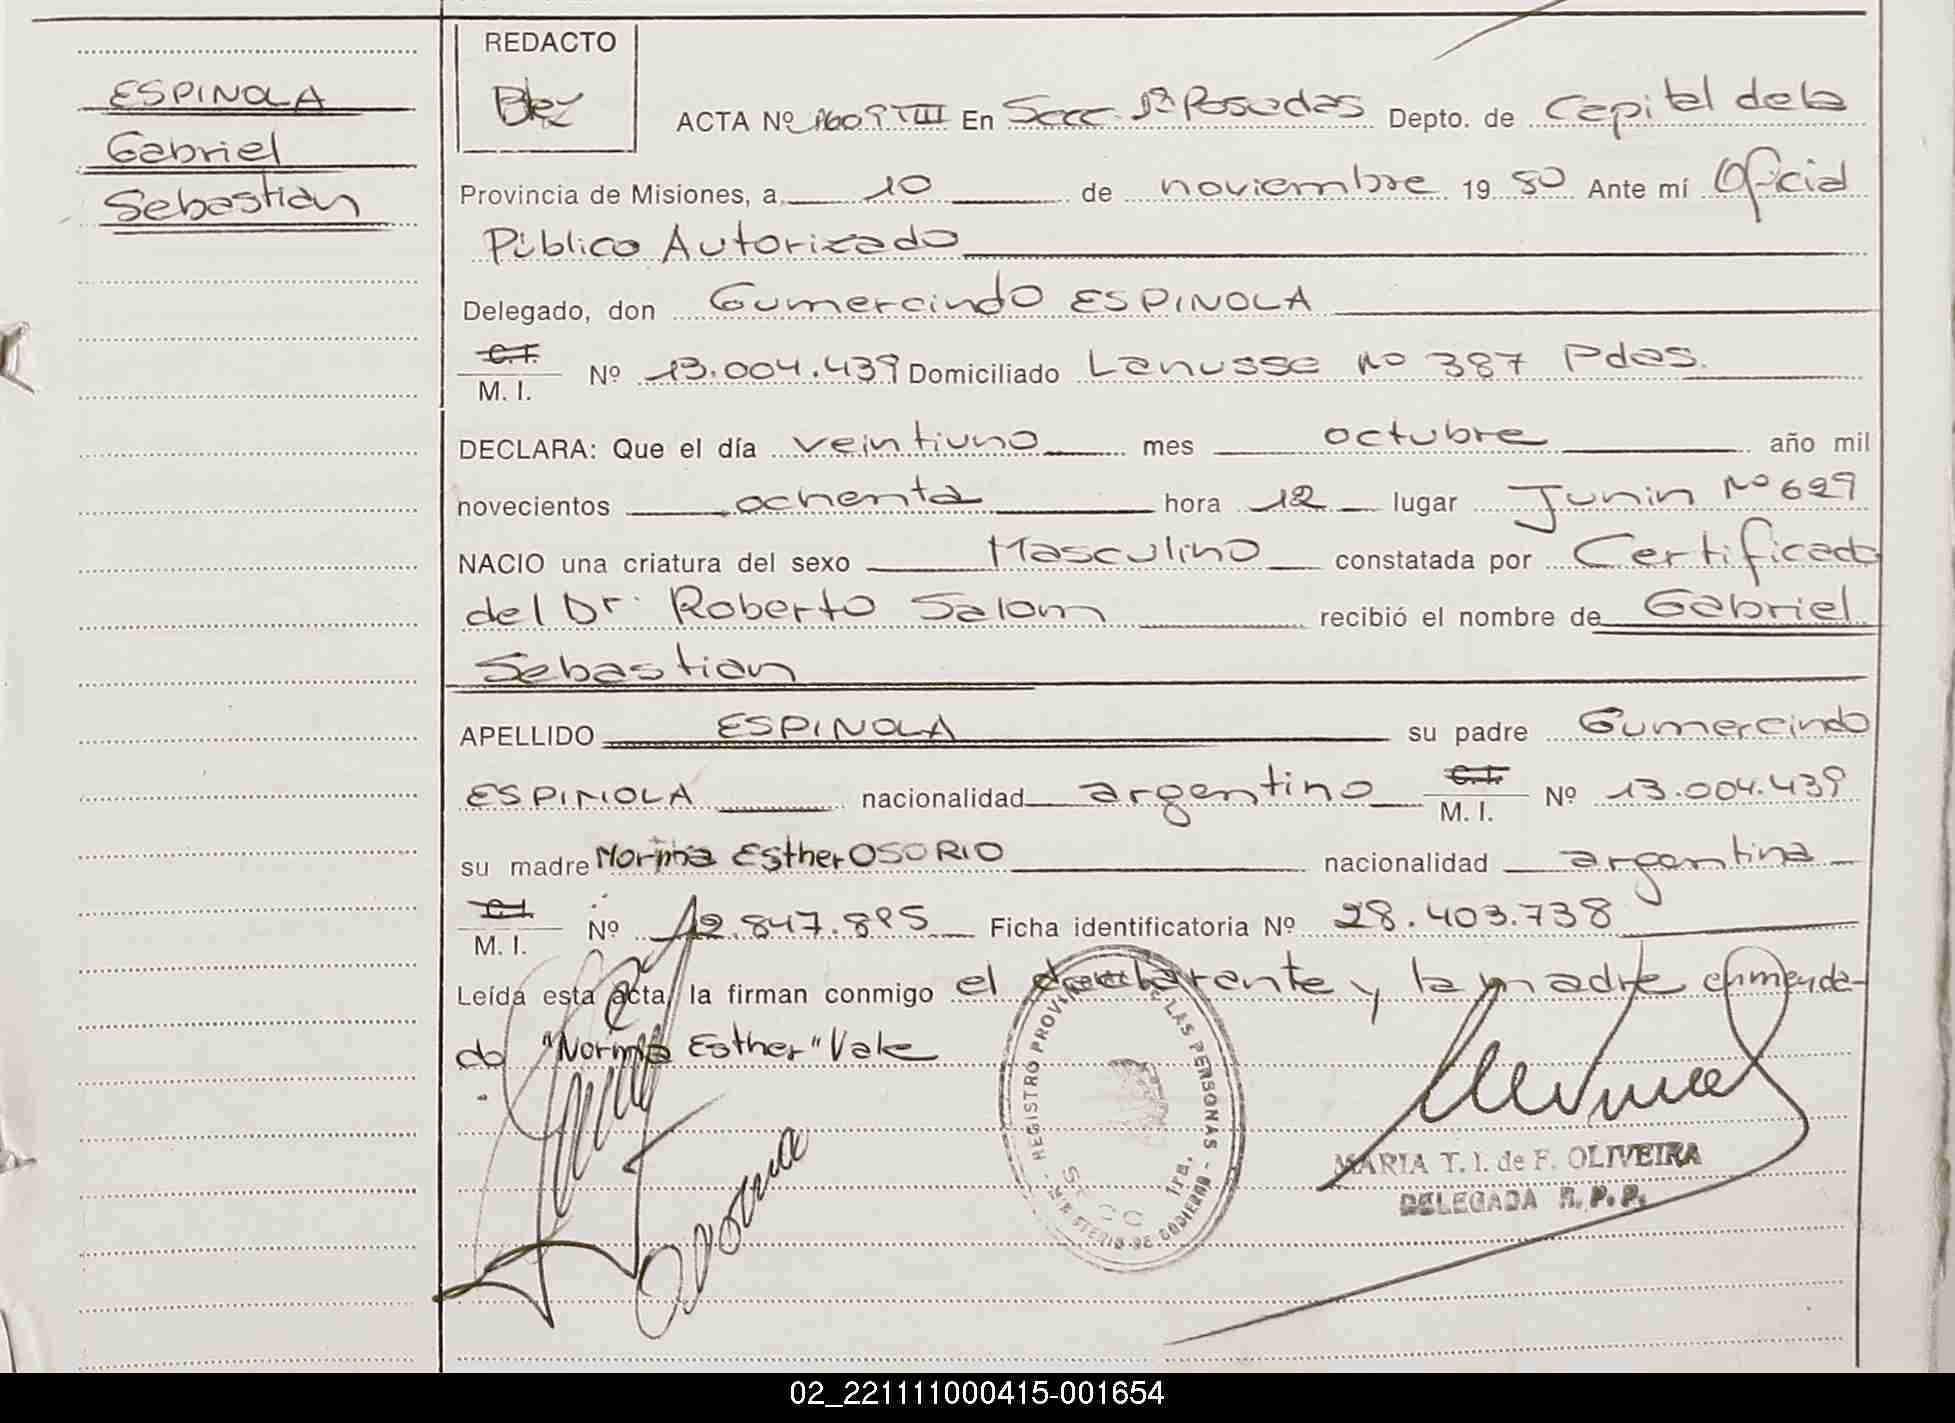 ESPINOLA
Gabriel
Sebastian
REDACTO
ACTA Nº 1609 TIII En Secc. 1ª Posadas Depto. de Capital de la
Provincia de Misiones, a 10 de noviembre 19 80 Ante mí Oficial
Público Autorizado
Delegado, don Gumercindo ESPINOLA
C.I.
M. I. Nº 13.004.439 Domiciliado Lanusse Nº 387 Pdas.
DECLARA: Que el día veintiuno mes octubre año mil
novecientos ochenta hora 12 lugar Junin Nº 629
NACIO una criatura del sexo Masculino constatada por Certificado
del Dr. Roberto Salom recibió el nombre de Gabriel
Sebastian
APELLIDO ESPINOLA su padre Gumercindo
ESPINOLA nacionalidad argentino C.I. M. I. Nº 13.004.439
su madre Norma Esther OSORIO nacionalidad argentina
C.I.
M. I. Nº 12.847.895 Ficha identificatoria Nº 28.403.738
Leída esta acta, la firman conmigo el declarante y la madre enmenda-
do "Norma Esther" Vale
REGISTRO PROVINCIAL DE LAS PERSONAS - MINISTERIO DE GOBIERNO -
SECC 1ra.
MARIA T. I. de F. OLIVEIRA
DELEGADA R. P. P.
02_221111000415-001654